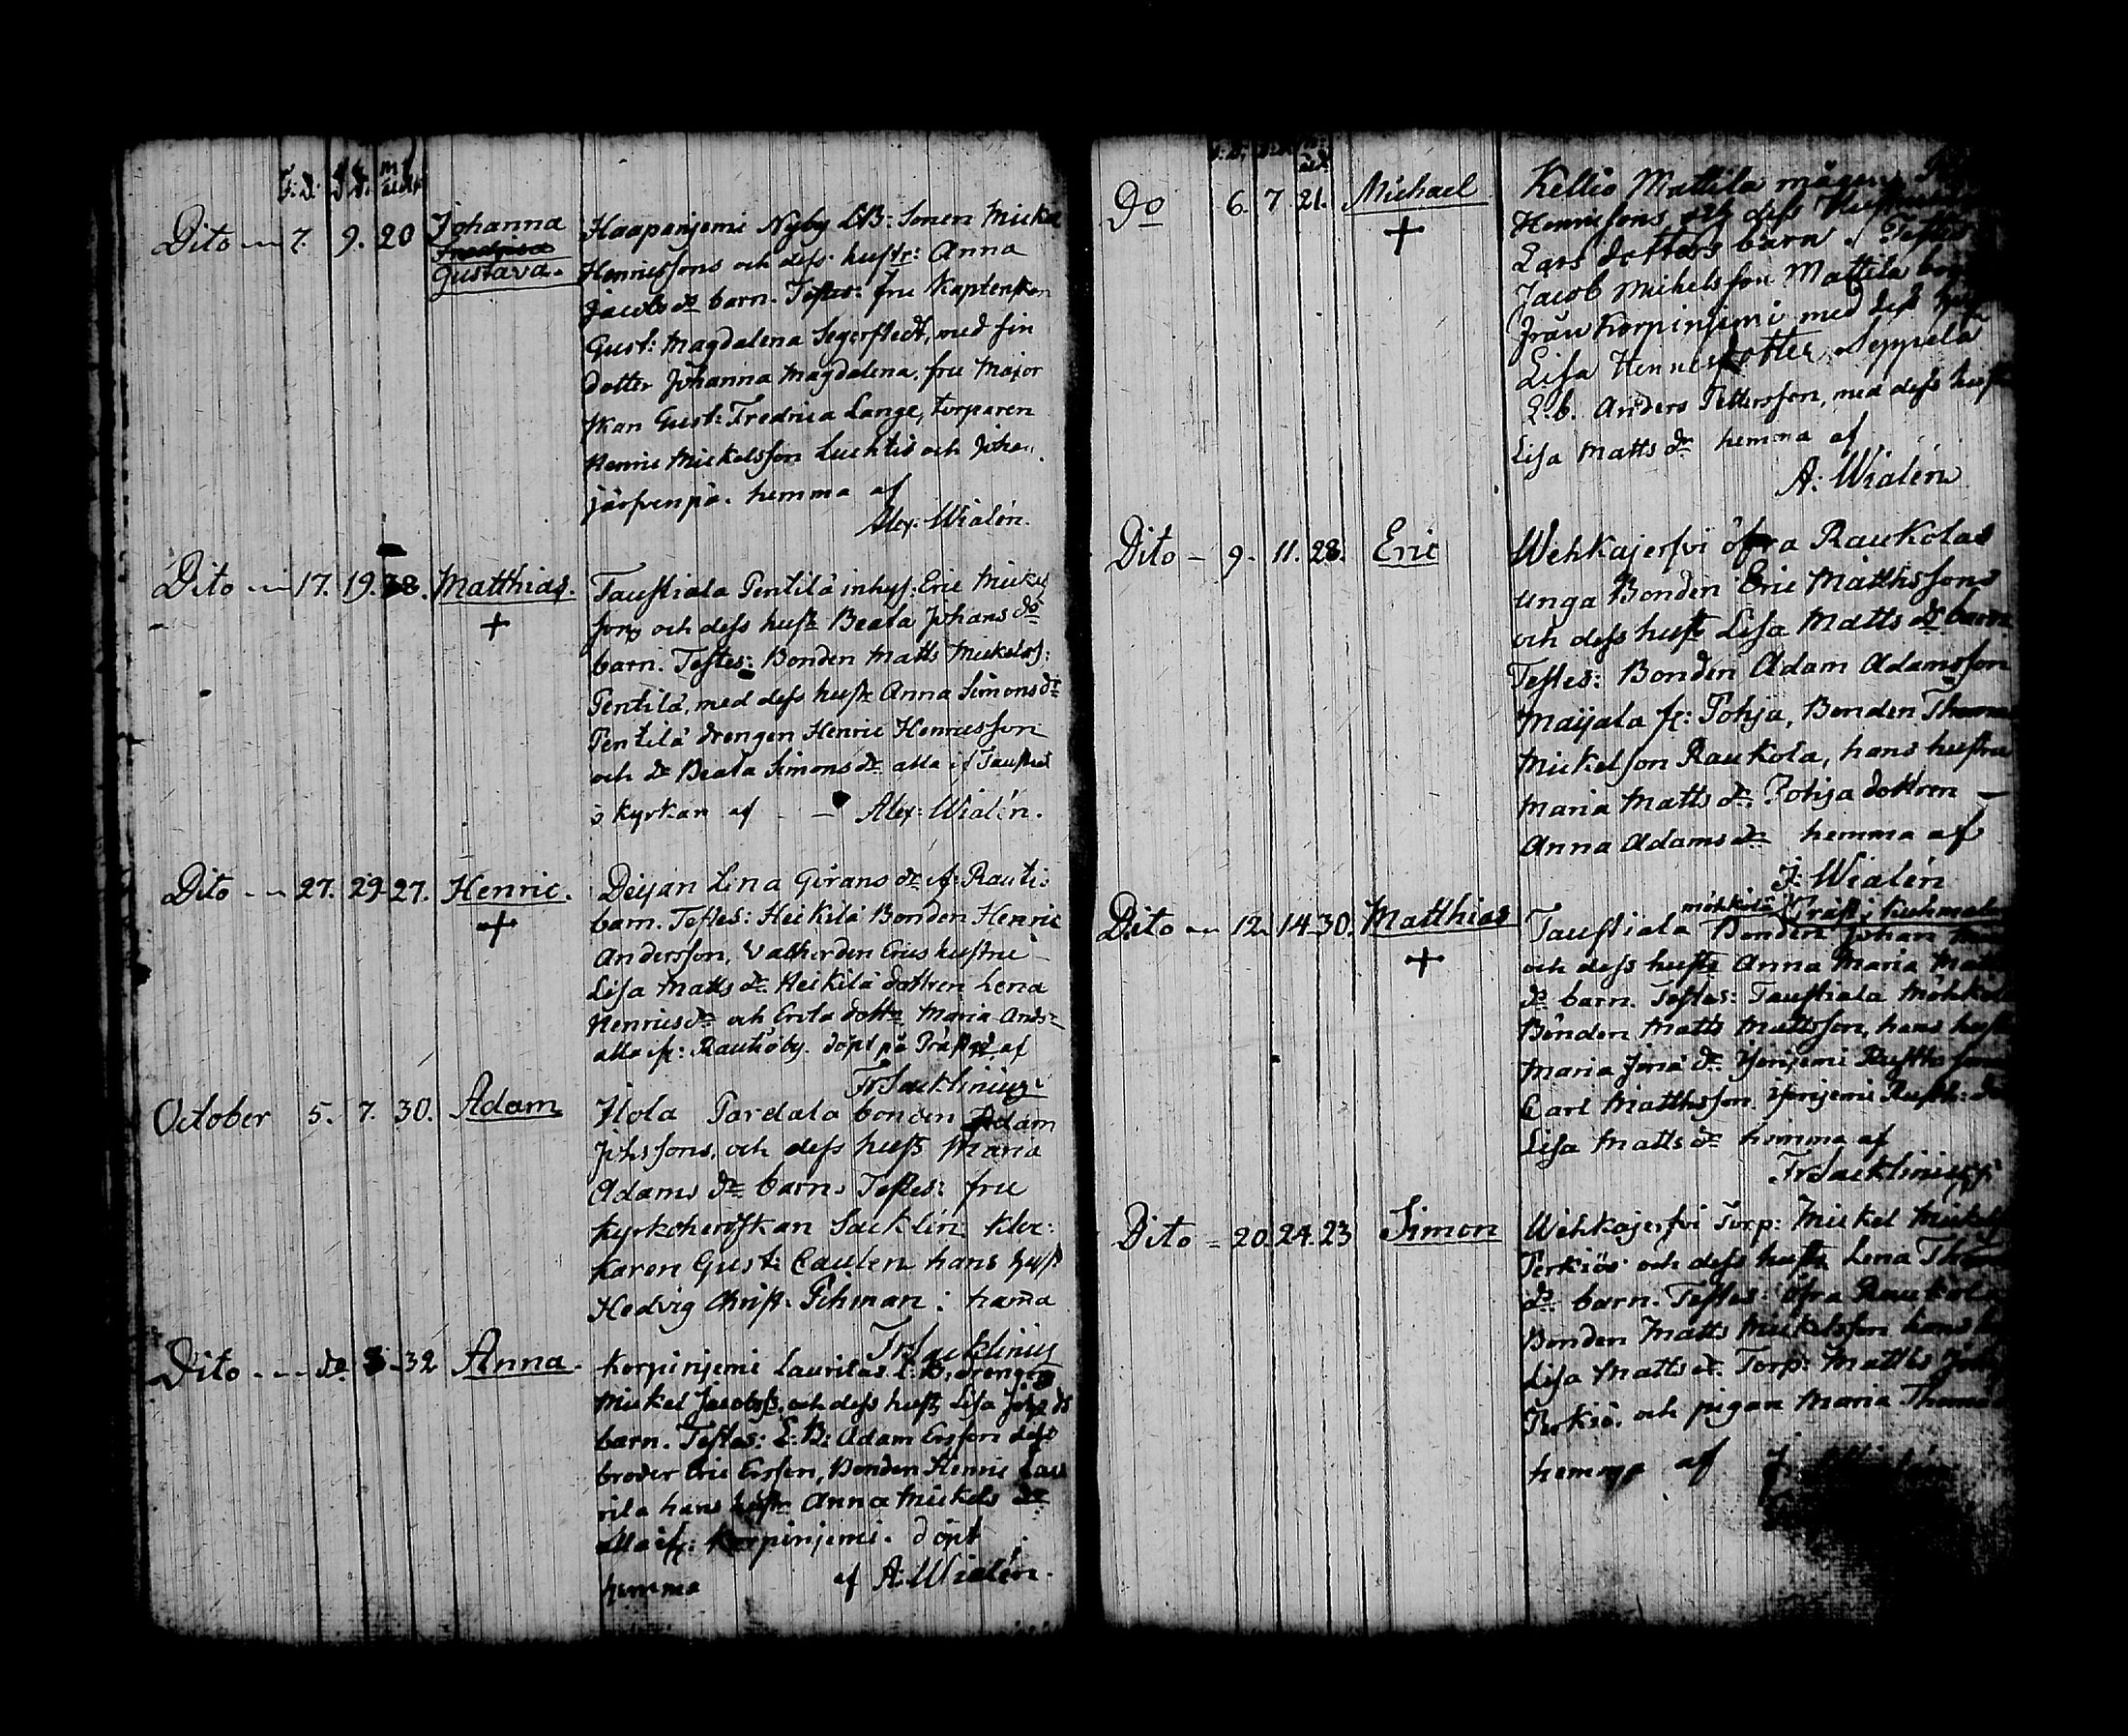 F:d. D:d. m: åld:
Dito — 7. 9. 20 Johanna
Gustava.
Haapanjemi Nyby LB: Sonen Mickel
Henricssons och dess hustr: Anna
Jacobs dr barn. Testes: fru Kaptenskan
Gust: Magdalena Segerstedt, med sin
dotter Johanna Magdalena, fru Major
skan Gust: Fredrica Lange, torparen
Henric Mickelsson Luchtis och
järfvenpä. hemma af
Alex: Wialén.
Dito — 17. 19. 28. Matthias.
+
Taustiala Pentilä inhys: Eric Mickel
sons och dess hustr Beata Johans dr
barn. Testes: Bonden Matts Mickelss:
Pentilä, med dess hustr Anna Simons dr
Pentilä drengen Henric Henricsson
och dr Beata Simons dr alla if Taustiala
i kyrkan af — Alex: Wialén.
Dito — 27. 29. 27. Henric.
+
Deijan Lina Görans dr if: Rautis
barn. Testes: Heikilä Bonden Henric
Andersson, Vatherden Erics hustru
Lisa Matts dr Heikilä dottren Lena
Henrics dr och Erola dottr Maria Anders
alla fr: Rautiöby. döpt på Prästgd af
Fr Sacklinius
October 5. 7. 30. Adam
Hola Pardala bonden Adam
Johssons, och dess hustr Maria
Adams dr barn. Testes: fru
Kyrkoherdskan Sacklin Kloc:
karen Gust: Caulen hans hust
Hedvig Christ: Pihman: hema
Fr Sacklinius
Dito — do. 8 — 32 Anna.
Korpinjemi Laurilas L:B. drengen
Mickel Jacobss. och dess hustr Lisa Johs dr
barn. Testes: L:B: Adam Ersson dess
broder Eric Ersson, Bonden Henric Lau
rila hans hustr Anna Mickels dr
alla if: Korpinjemi. döpt
hemma af A: Wialén.
Do 6. 7. 21. Michael
+
Kellio Mattila mågen
Henricssons och dess Hustru
Lars dotters barn. Testes
Jacob Michelsson Mattila
från Korpinjemi med dess
Lisa Henricsdotter, Seppelä
L.b. Anders Pettersson, med dess hustr
Lisa Matts dr hemma af
A: Wialén
Dito — 9. 11. 28. Eric
Wehkajerfvi öfra Raukolas
unga Bonden Eric Matthssons
och dess hustr Lisa Matts dr barn
Testes: Bonden Adam Adamsson
Maijala fr: Pohja, Bonden Thomas
Mickelson Raukola, hans hustru
Maria Matts dr Pohja dottren —
Anna Adams dr hemma af
J: Wialén
Dito — 12. 14. 30. Matthias
+
möhkölä Kuhmalax
Taustiala Bonden Johan
och dess hustr Anna Maria Matts
dr barn. Testes: Taustiala Möhkölä
Bonden Matts Mattsson, hans hustr
Maria dr Yönjemi Rusth:
Carl Matthsson. Yönjemi Rusth:
Lisa Matts dr hemma af
Fr Sacklinius
Dito — 20. 24. 23 Simon
Wehkajerfvi Torp: Mickel
Perkiös och dess hustr Lena
dr barn. Testes: öfra Raukola
Bonden Matts Mickelsson hans
Lisa Matts dr Torp: Matths
Perkiö. och pigan Maria
hemma af J: